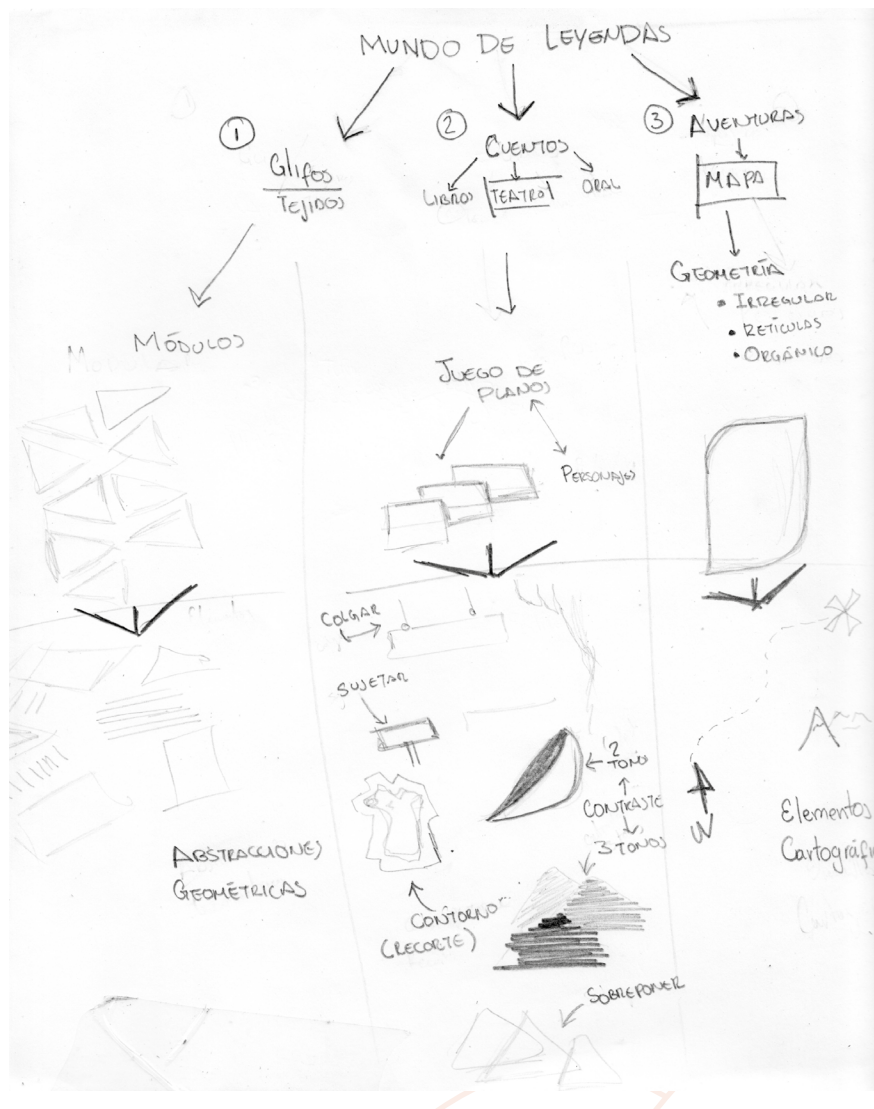 MUNDO DE LEYENDAS
1
Glifos
TEJIDOS
MÓDULOS
ABSTRACCIONES
GEOMÉTRICAS
2
CUENTOS
LIBROS
TEATRO
ORAL
JUEGO DE
PLANOS
PERSONAJES
COLGAR
SUJETAR
2
TONOS
CONTRASTE
3 TONOS
CONTORNO
(RECORTE)
SOBREPONER
3
AVENTURAS
MAPA
GEOMETRÍA
• IRREGULAR
• RETÍCULAS
• ORGÁNICO
N
Elementos